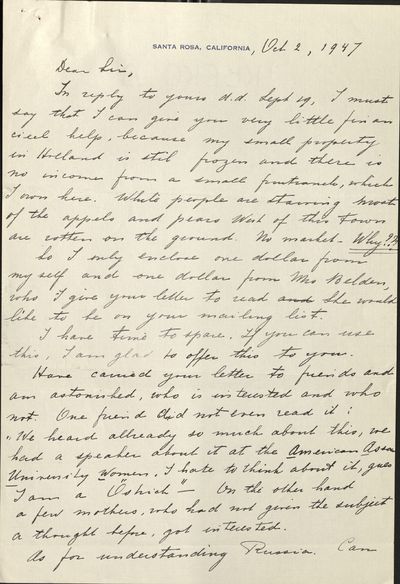 SANTA ROSA, CALIFORNIA, Oct 2, 1947
Dear Sir,
In reply to yours d.d. Sept 29, I must
say that I can give you very little finan
cieel help, because my small property
in Holland is stil frozen and there is
no income from a small fruitranch, which
I own here. While people are starving most
of the appels and pears West of this town
are rotten on the ground. No market - Why??
So I only enclose one dollar from
myself and one dollar from Mrs Belden,
who I give your letter to read and she would
like to be on your mailing list.
I have time to spare. If you can use
this, I am glad to offer this to you.
Have carried your letter to friends and
am astonished, who is interested and who
not. One friend did not even read it:
"We heard allready so much about this, we
had a speaker about it at the American Assn
University Women. I hate to think about it, guess
I am a "Ostrich" — On the other hand
a few mothers, who had not given the subject
a thought before, got interested.
As for understanding Russia. Can